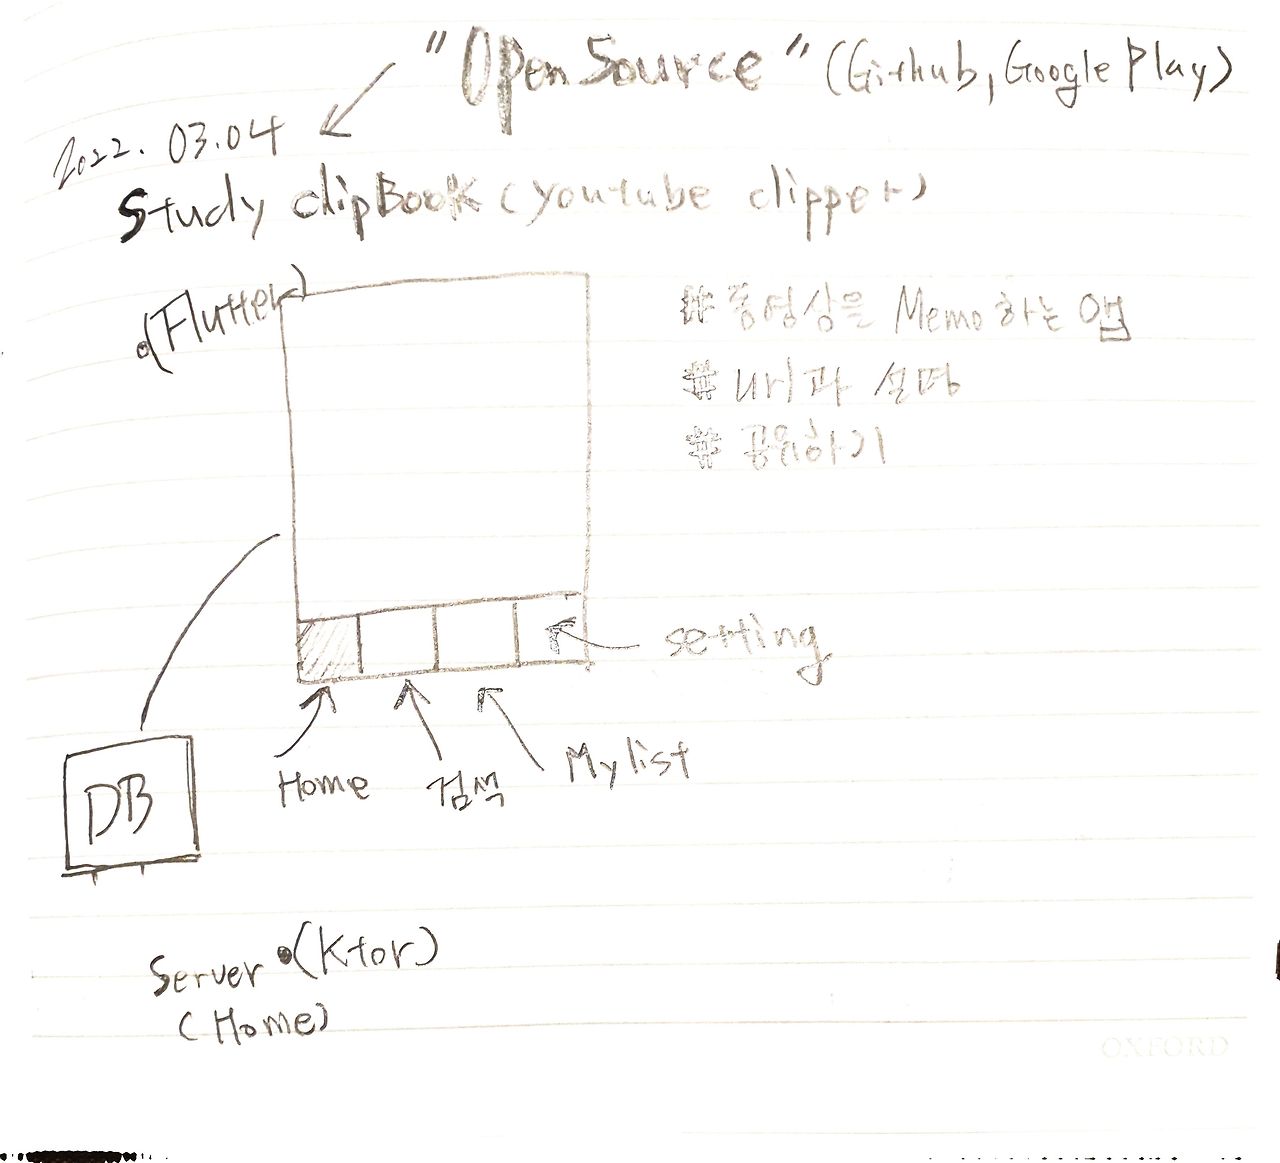 "Open Source" (Github, Google Play)
2022. 03.04
Study clipBook (youtube clipper)
(Flutter)
#동영상을 Memo 하는 앱
# url과 설명
# 공유하기
setting
Home
검색
My list
DB
Server (Ktor)
(Home)
OXFORD